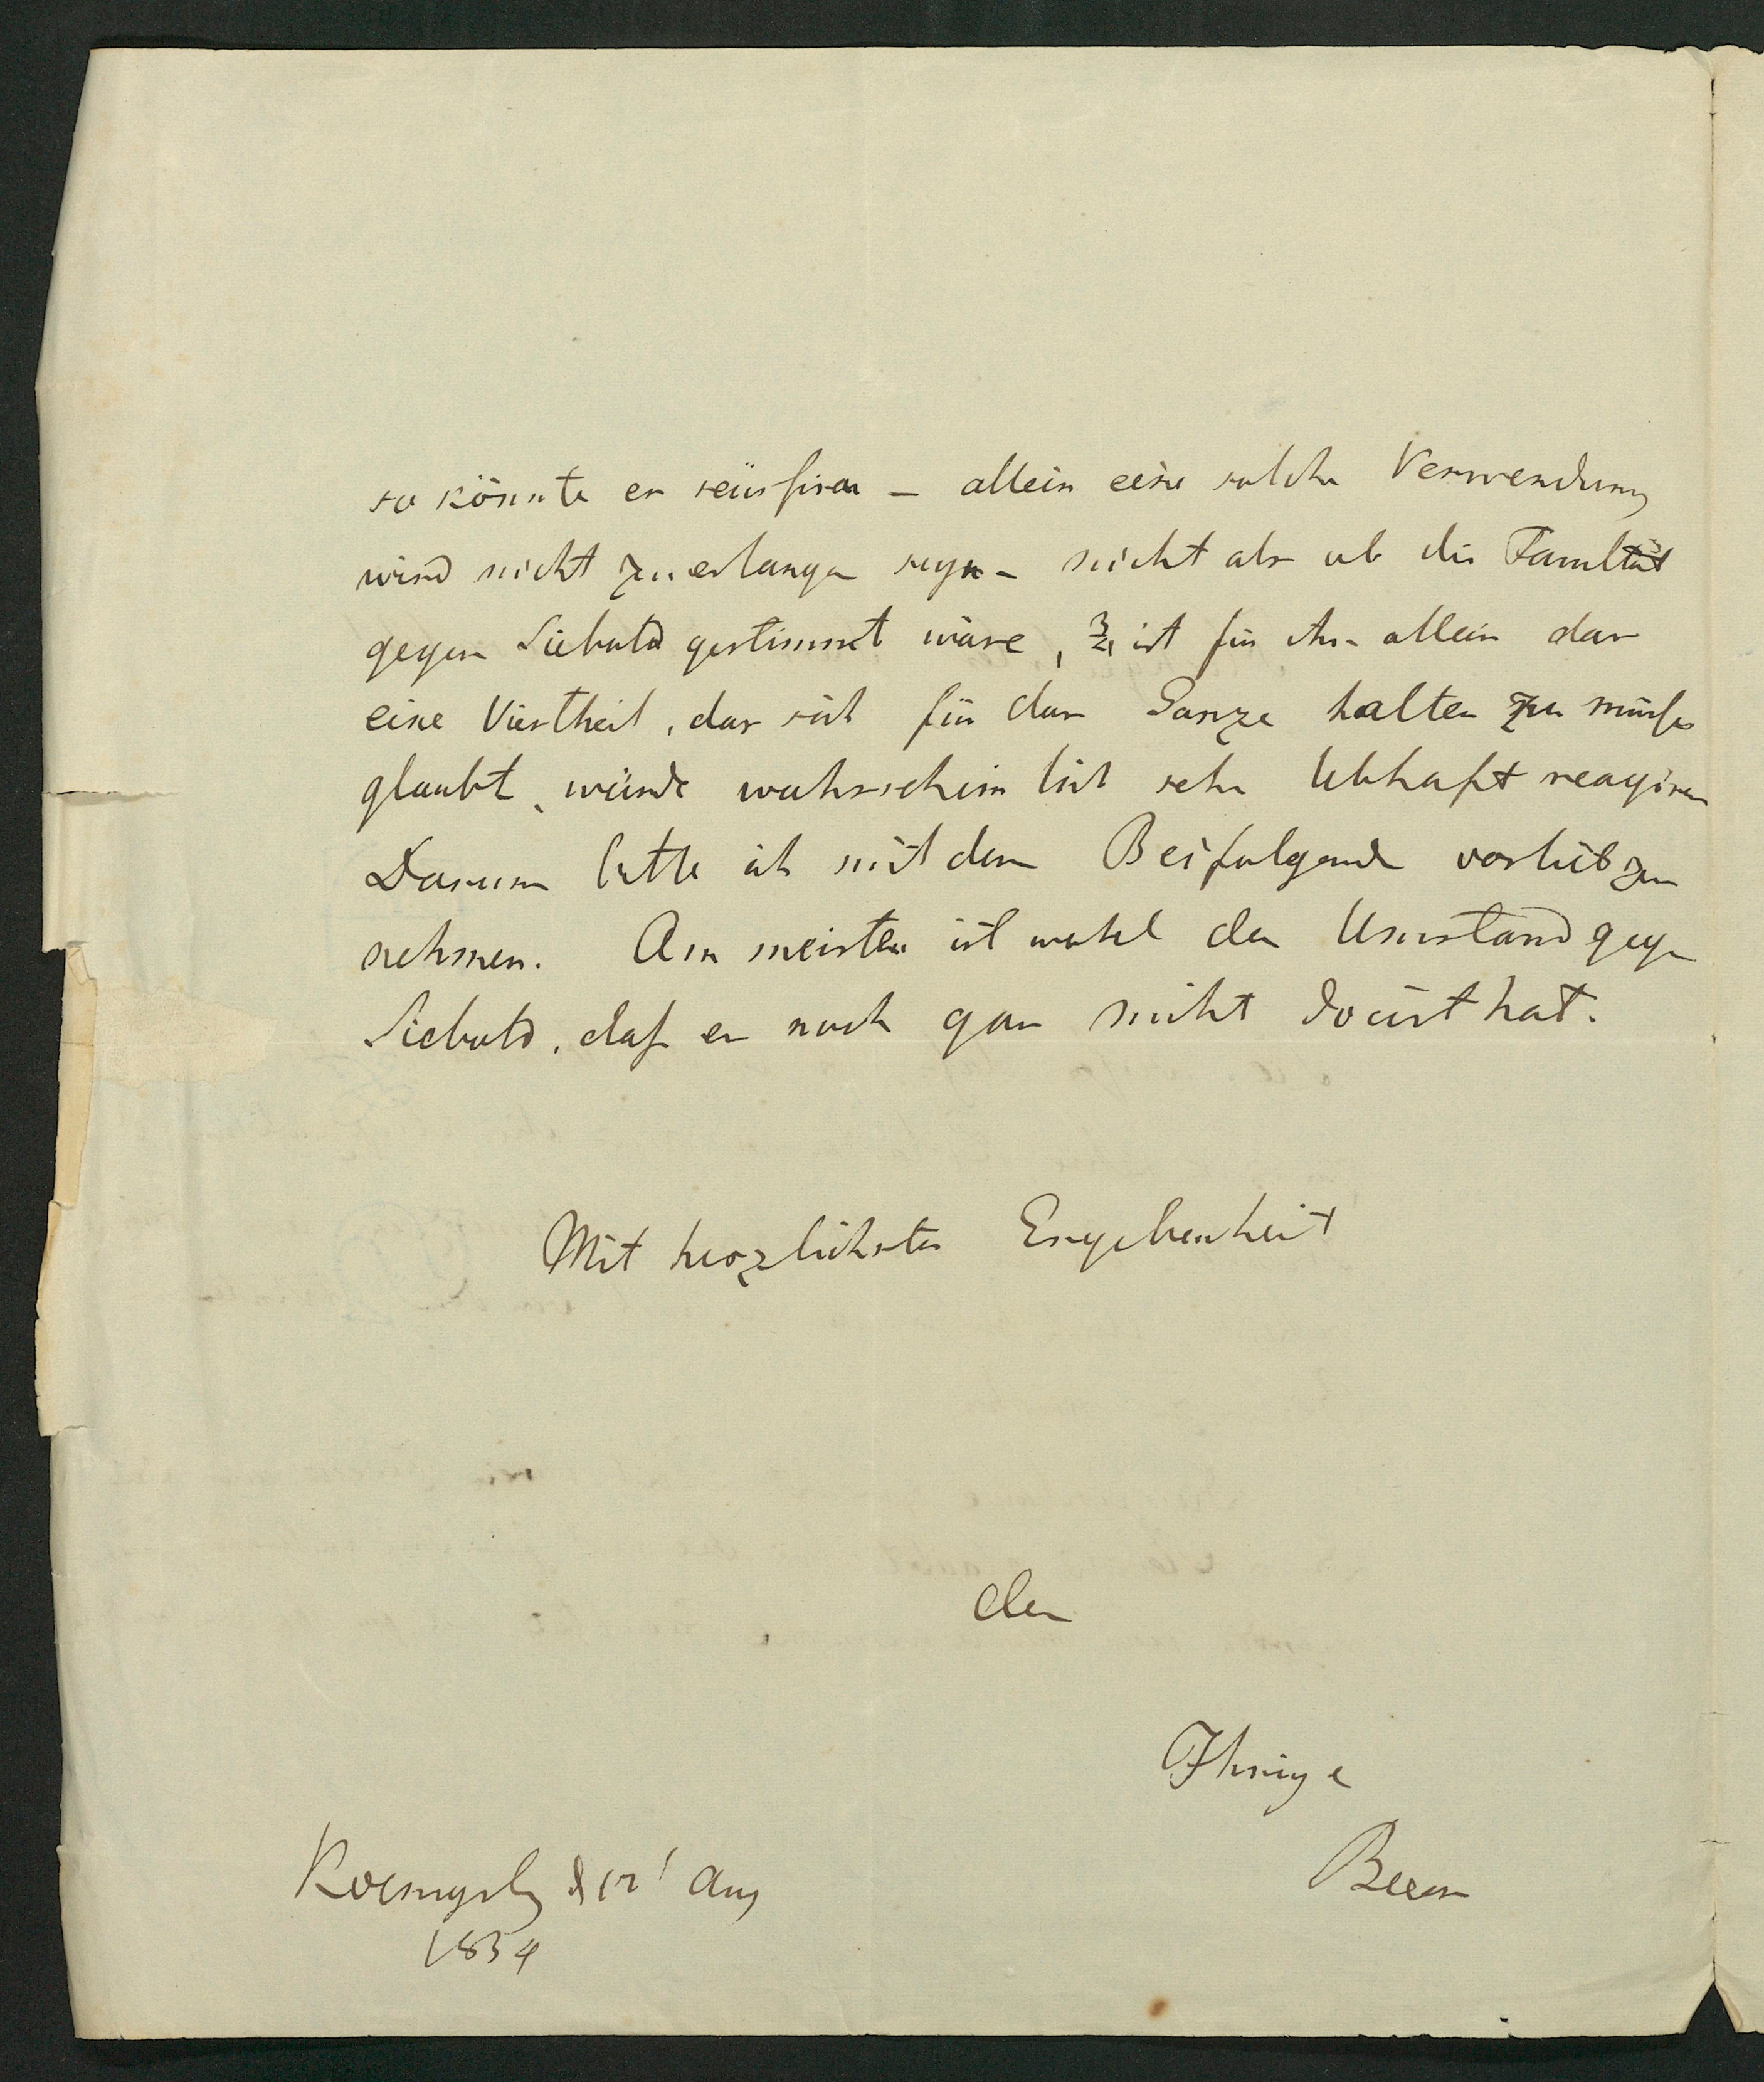 so könnte er reüssiren – allein eine solche Verwendung
wird nicht zu erlangen seyn – nicht als ob die Facultät
gegen Siebold gestimmt wäre, ¾ ist für ihn allein das
eine Viertheil, das sich für das Ganze halten zu müssen
glaubt, würde wahrscheinlich sehr lebhaft reagiren
Darum bitte ich mit dem Beifolgenden vorlieb zu
nehmen. Am meisten ist wohl der Umstand gegen
Siebold, daß er noch gar nicht docirt hat.
Mit herzlichster Ergebenheit
der
Ihrige
Baer
Koenigsbg d 12t Aug
1834